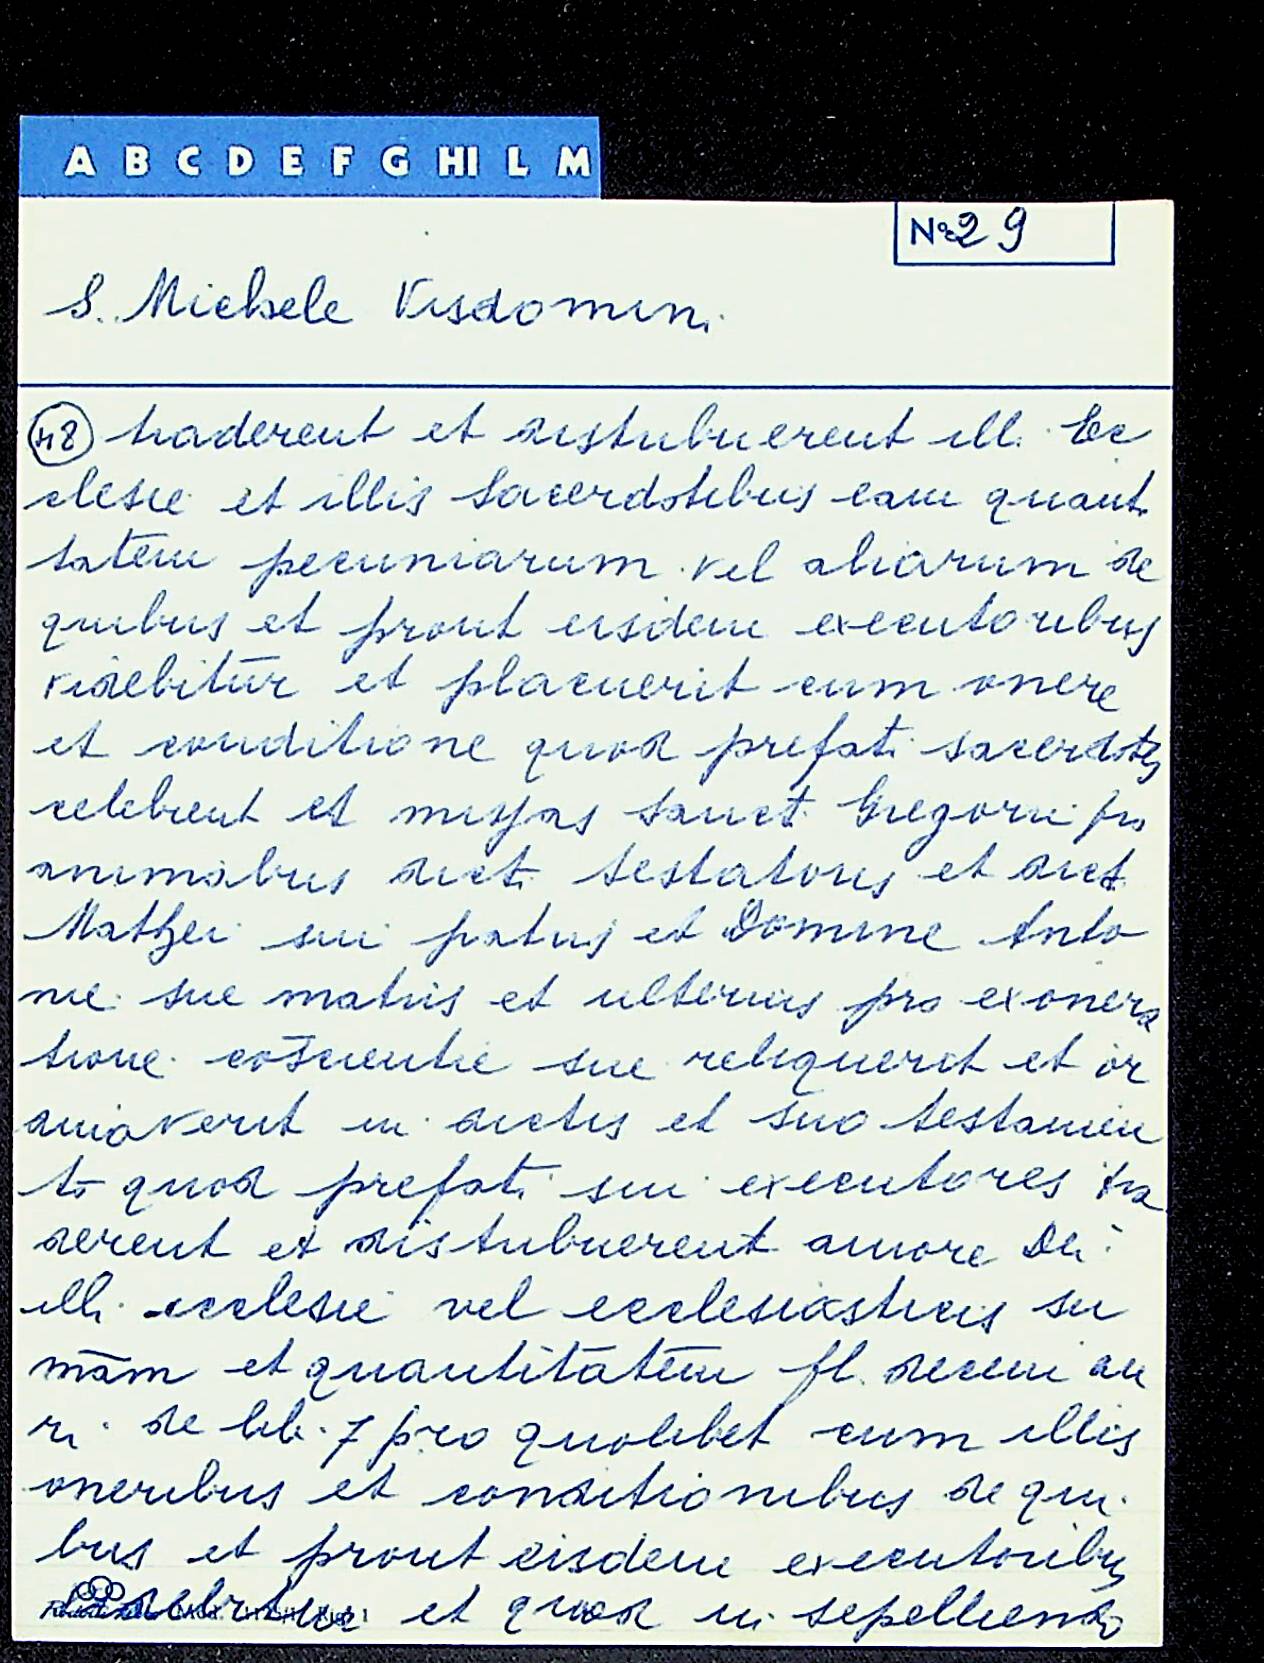 A B C D E F G HI L M
N° 29
S. Michele Visdomini
48 traderent et distribuerent ill. Ec
clesie et illis sacerdotibus eam quanti
tatem pecuniarum vel aliarum de
quibus et prout eisdem executoribus
videbitur et placuerit cum onere
et conditione quod prefati sacerdotes
celebrent et missas sancti Gregorii pro
animabus dicti testatoris et dicti
Mathei sui patris et Domine Anto
nie sue matris et ulterius pro exonera
tione coscientie sue reliquerit et or
dinaverit in dictis et suo testamen
to quod prefati sui executores tra
derent et distribuerent amore Dei
illi ecclesie vel ecclesiasticis su
mam et quantitatem fl. decem au
ri de lib. 7 pro quolibet cum illis
oneribus et conditionibus de qui
bus et prout eisdem executoribus
videbitur et quod in sepelliendo